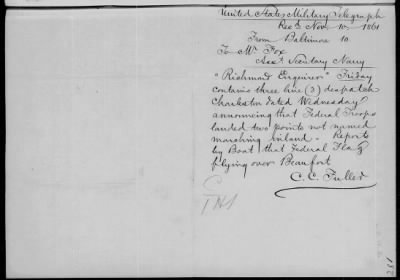 United States Military Telegraph
Rec'd Nov. 10 1861
From Baltimore 10
To Mr Fox
Asst Secretary Navy
"Richmond Enquirer" Friday
contains three line (3) despatch
Charleston dated Wednesday
announcing that Federal Troops
landed two points not named
marching inland - Reports
by Boat that Federal Flag
flying over Beaufort
C. C. Fuller